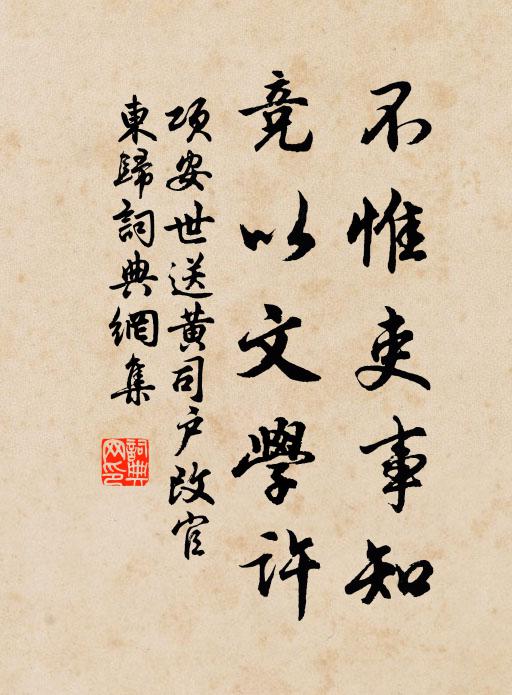 不惟吏事知
竟以文學許
項安世送黄司戶改官
東歸詞典網集
詞典网印